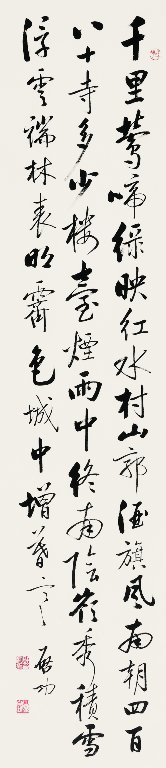 千里鶯啼綠映紅水村山郭酒旗風南朝四百
八十寺多少樓臺煙雨中終南陰嶺秀積雪
浮雲端林表明霽色城中增暮寒 啟功